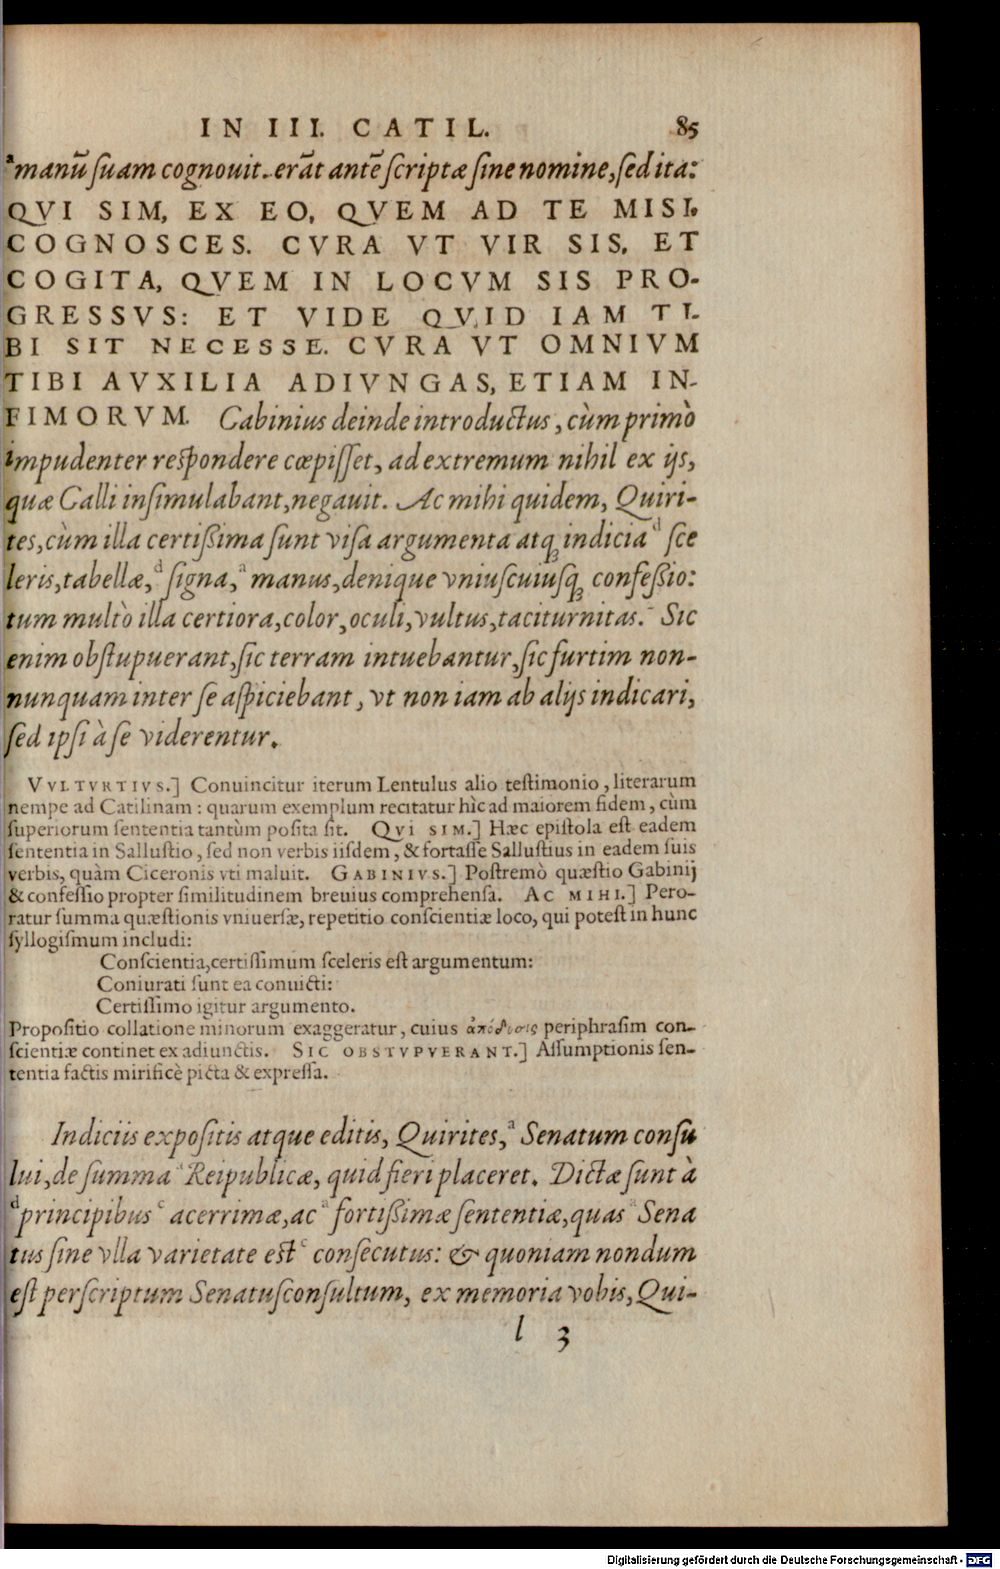 IN III. CATIL. 85
ᵃmanū ſuam cognouit. erāt antē ſcriptæ ſine nomine, ſed ita:
QVI SIM, EX EO, QVEM AD TE MISI,
COGNOSCES. CVRA VT VIR SIS, ET
COGITA, QVEM IN LOCVM SIS PRO-
GRESSVS: ET VIDE QVID IAM TI-
BI SIT NECESSE. CVRA VT OMNIVM
TIBI AVXILIA ADIVNGAS, ETIAM IN-
FIMORVM. Gabinius deinde introductus, cùm primò
impudenter reſpondere cœpiſſet, ad extremum nihil ex ijs,
quæ Galli inſimulabant, negauit. Ac mihi quidem, Quiri-
tes, cùm illa certißima ſunt viſa argumenta atq; indicia ᵈ ſce
leris, tabellæ, ᵈ ſigna, ᵃ manus, denique vniuſcuiuſq; confeßio:
tum multò illa certiora, color, oculi, vultus, taciturnitas. Sic
enim obſtupuerant, ſic terram intuebantur, ſic furtim non-
nunquam inter ſe aſpiciebant, vt non iam ab alijs indicari,
ſed ipſi à ſe viderentur.
VVLTVRTIVS.] Conuincitur iterum Lentulus alio teſtimonio, literarum
nempe ad Catilinam: quarum exemplum recitatur hîc ad maiorem fidem, cùm
ſuperiorum ſententia tantùm poſita ſit. QVI SIM.] Hæc epiſtola eſt eadem
ſententia in Salluſtio, ſed non verbis iiſdem, & fortaſſe Salluſtius in eadem ſuis
verbis, quàm Ciceronis vti maluit. GABINIVS.] Poſtremò quæſtio Gabinij
& confeſſio propter ſimilitudinem breuius comprehenſa. AC MIHI.] Pero-
ratur ſumma quæſtionis vniuerſæ, repetitio conſcientiæ loco, qui poteſt in hunc
ſyllogiſmum includi:
Conſcientia, certiſſimum ſceleris eſt argumentum:
Coniurati ſunt ea conuicti:
Certiſſimo igitur argumento.
Propoſitio collatione minorum exaggeratur, cuius ἀπόδοσις periphraſim con-
ſcientiæ continet ex adiunctis. SIC OBSTVPVERANT.] Aſſumptionis ſen-
tentia factis mirificè picta & expreſſa.
Indiciis expoſitis atque editis, Quirites, ᵃ Senatum conſu
lui, de ſumma ᵃ Reipublicæ, quid fieri placeret. Dictæ ſunt à
ᵈprincipibus ᶜ acerrimæ, ac ᵃ fortißimæ ſententiæ, quas ᵃ Sena
tus ſine vlla varietate eſt ᶜ conſecutus: & quoniam nondum
eſt perſcriptum Senatuſconſultum, ex memoria vobis, Qui-
l 3
Digitalisierung gefördert durch die Deutsche Forschungsgemeinschaft - DFG